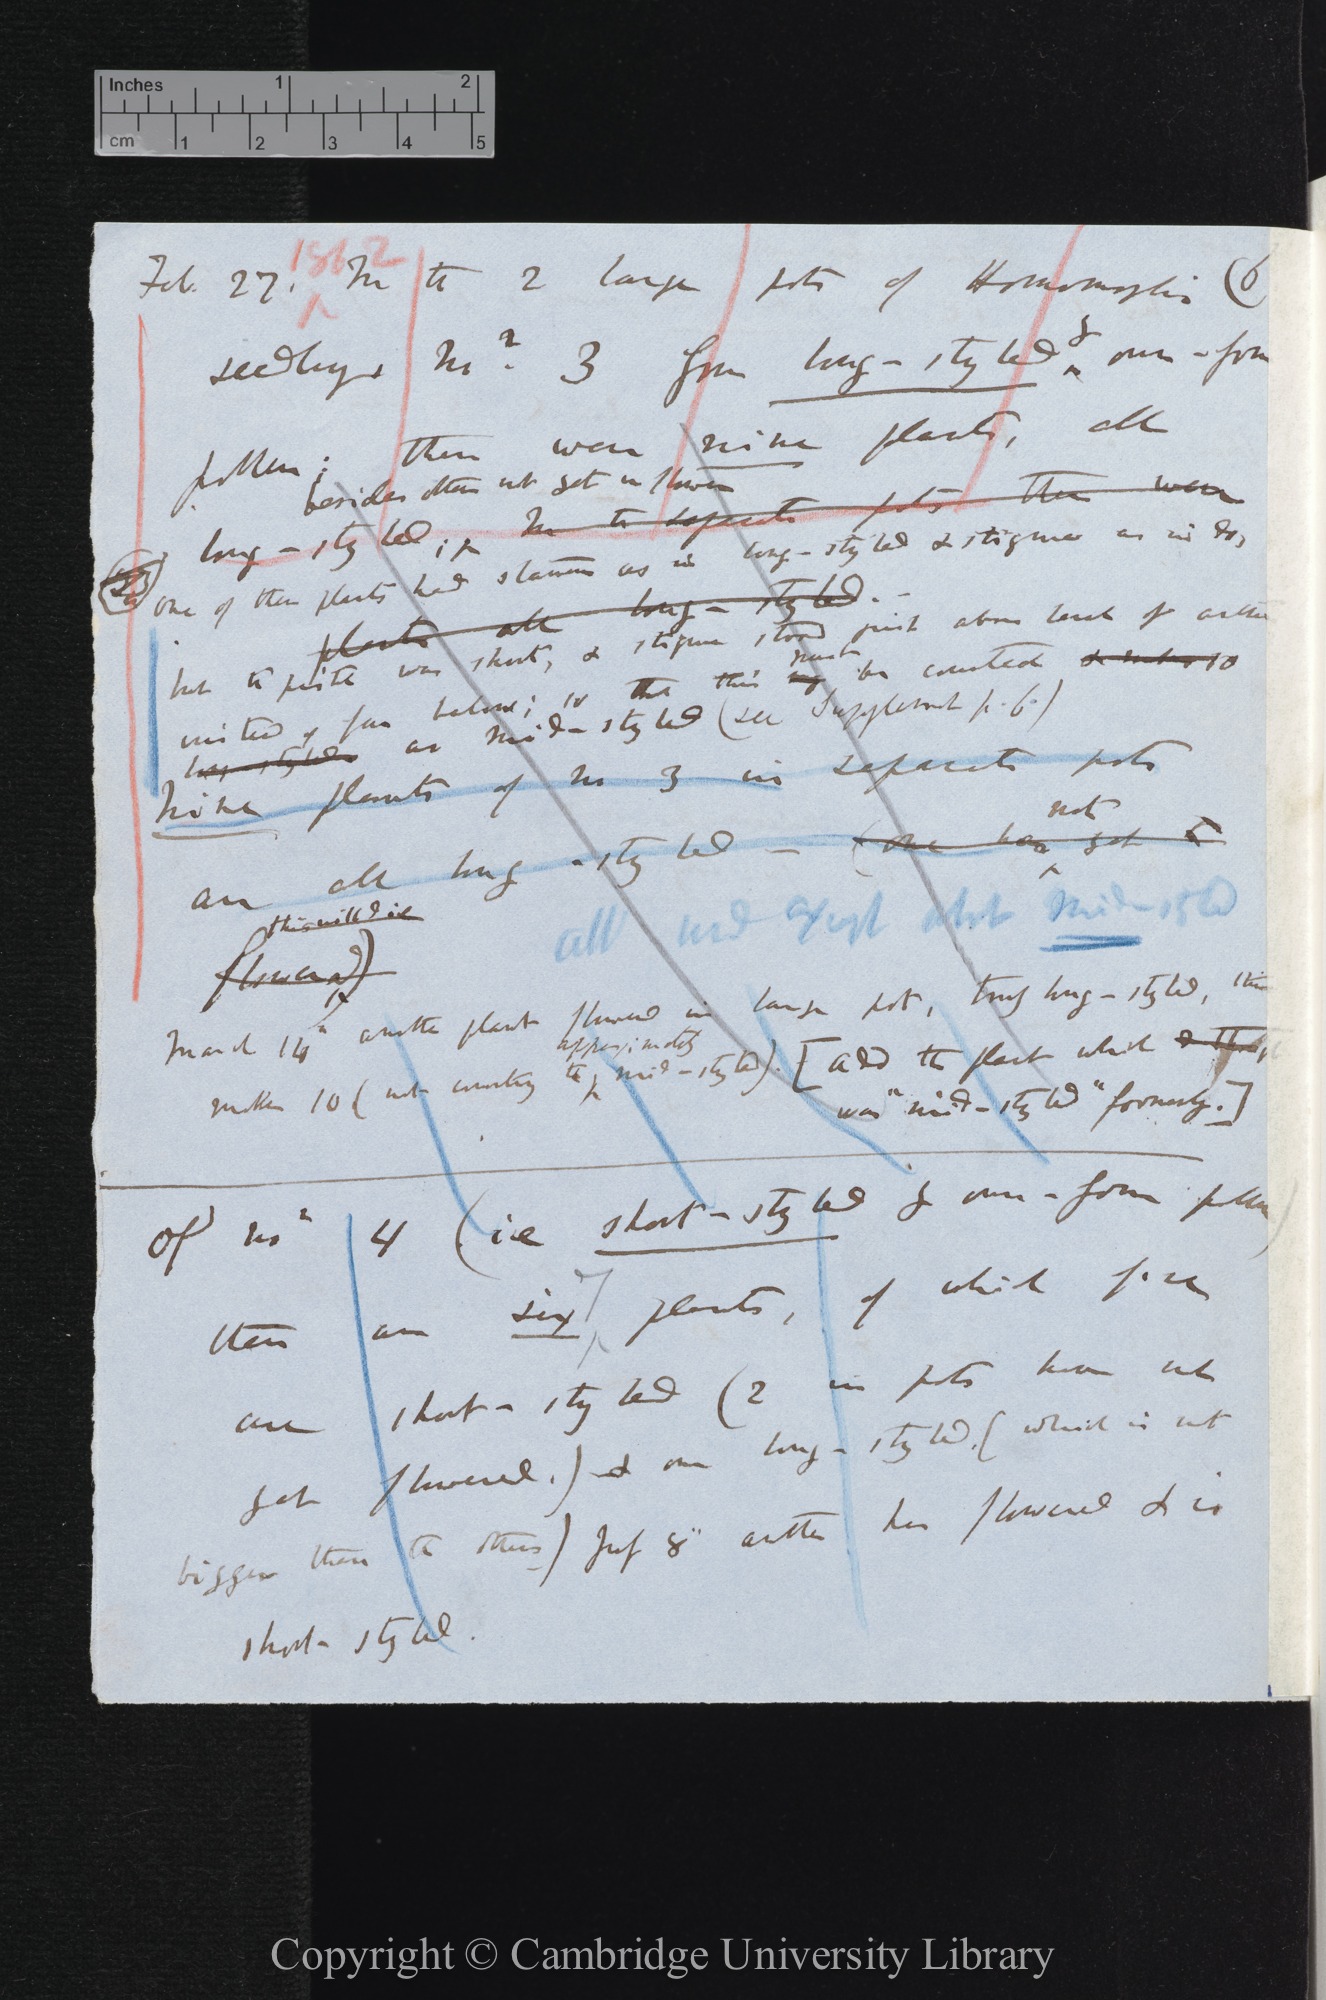 Inches 1 2
cm 1 2 3 4 5
1862
Feb. 27. In the 2 large pots of Homomorphic (6
seedlings No. 3 from long-styled & own-form
pollen; there were nine plants, all
besides others not yet in flower
long-styled; In the separate pots there were
one of these plants had stamens as in long-styled & stigma as in do,
plants all long-styled.
but the pistil was short, & stigma stood just above level of anthers
must
united & far below; so that this be counted & makes 10
long-styled as mid-styled (see Supplement p. 6.)
Nine plants of no 3 in separate pots
not
are all long-styled — (one has yet
this will die
flowered)
all used except about mid-styled
March 14th another plant flowered in large pot, truly long-styled, this
approximately
makes 10 (not counting the mid-styled). [Add the plant which
was "mid-styled" formerly.]
Of no 4 (ie short-styled & own-form pollen)
7
there are six plants, of which five
are short-styled (2 in pots have not
yet flowered.) & one long-styled. (which is not
bigger than the others) July 8th another has flowered & is
short-styled.
Copyright © Cambridge University Library